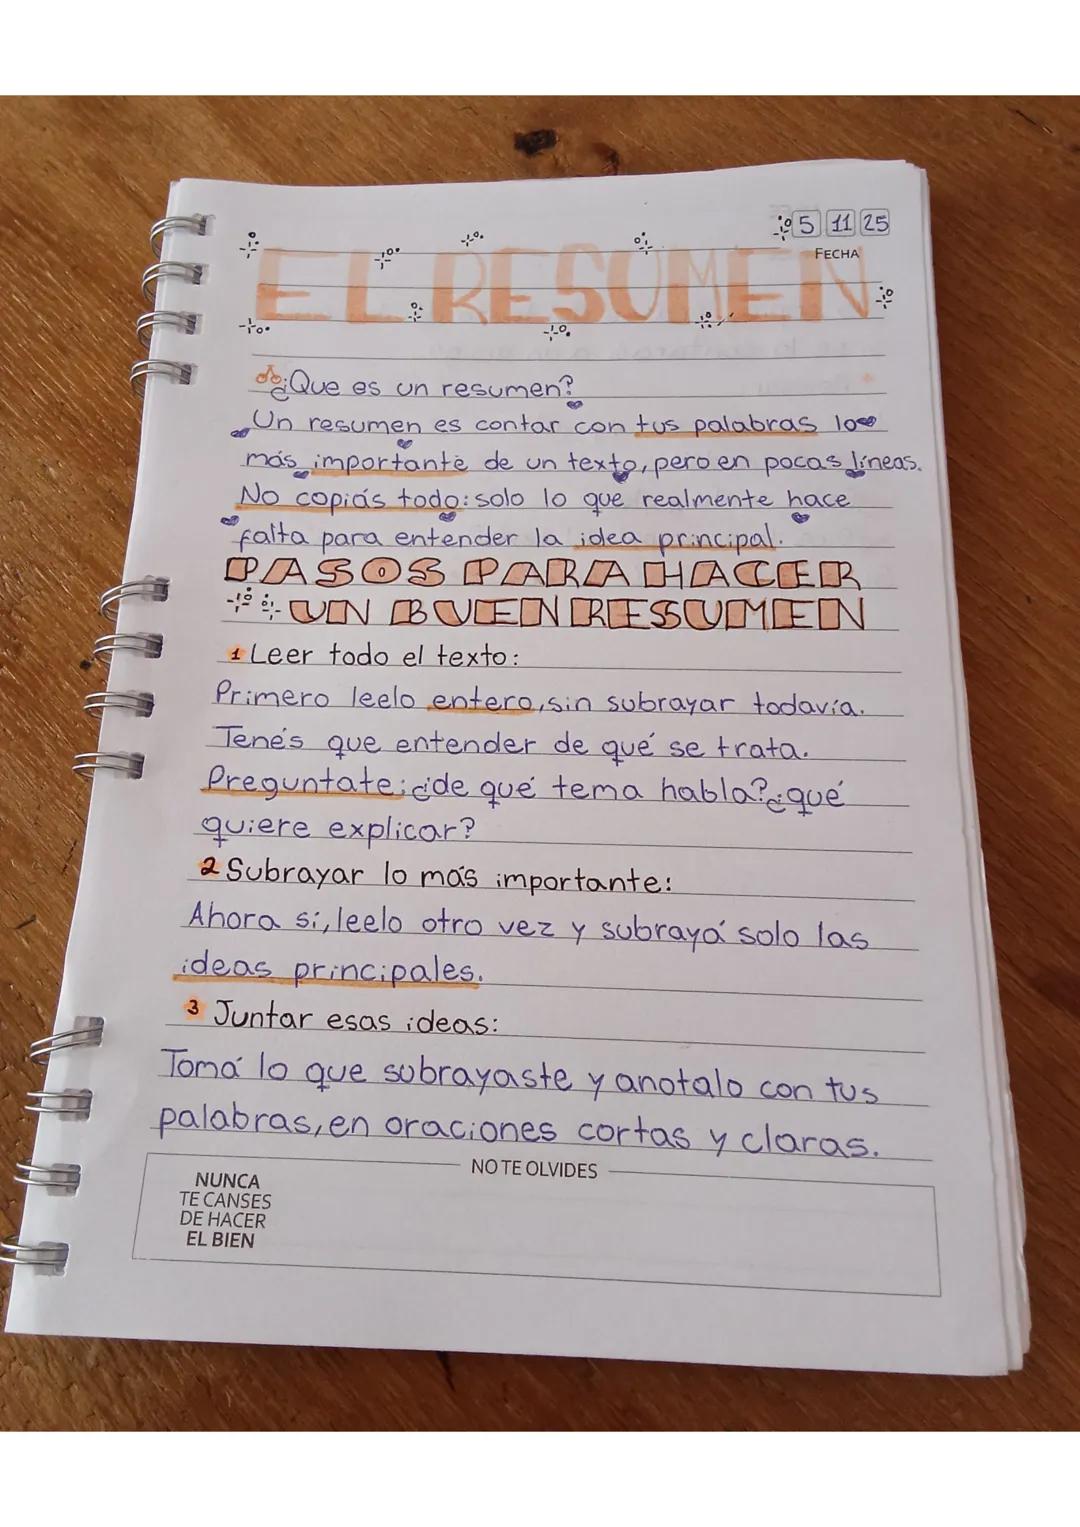 5 11 25
FECHA
EL RESUMEN
¿Que es un resumen?
Un resumen es contar con tus palabras lo
más importante de un texto, pero en pocas líneas.
No copiás todo: solo lo que realmente hace
falta para entender la idea principal.
PASOS PARA HACER
UN BUEN RESUMEN
1 Leer todo el texto:
Primero leelo entero, sin subrayar todavía.
Tenés que entender de qué se trata.
Preguntate: ¿de qué tema habla? ¿qué
quiere explicar?
2 Subrayar lo más importante:
Ahora sí, leelo otro vez y subrayá solo las
ideas principales.
3 Juntar esas ideas:
Tomá lo que subrayaste y anotalo con tus
palabras, en oraciones cortas y claras.
NO TE OLVIDES
NUNCA
TE CANSES
DE HACER
EL BIEN